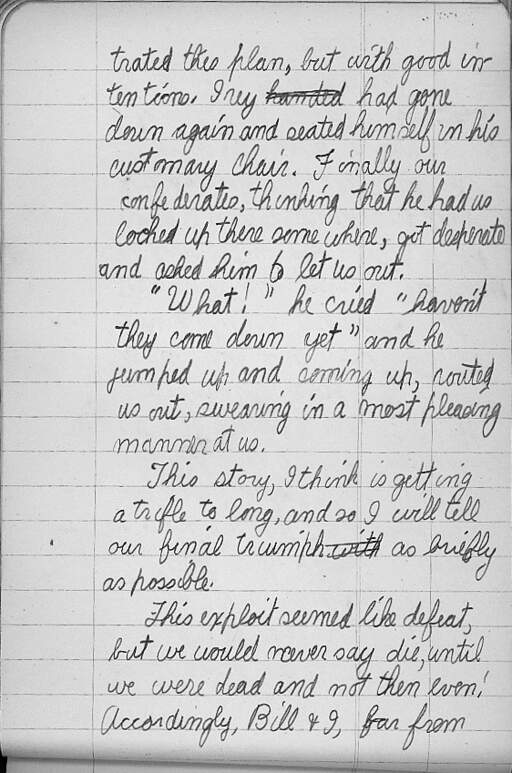 trated this plan, but with good in-
tentions. Trey handed had gone
down again and seated himself in his
customary chair. Finally our
confederates, thinking that he had us
locked up there somewhere, got desperate
and asked him to let us out.
"What!" he cried "haven't
they come down yet" and he
jumped up and coming up, routed
us out, swearing in a most pleasing
manner at us.
This story, I think is getting
a trifle to long, and so I will tell
our final triumph with as briefly
as possible.
This exploit seemed like defeat,
but we would never say die, until
we were dead and not then even!
Accordingly, Bill & I, far from